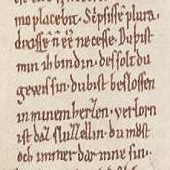 mo placebit. Sȩpissiͤ plura
dixisse n̄ eē necesse. Du bist
min ih bin din. des solt du
gewis sin. du bist beslossen
in minem herzen. verlorn
ist daz sluzzellin. du mǒst
och immer dar inne sin.